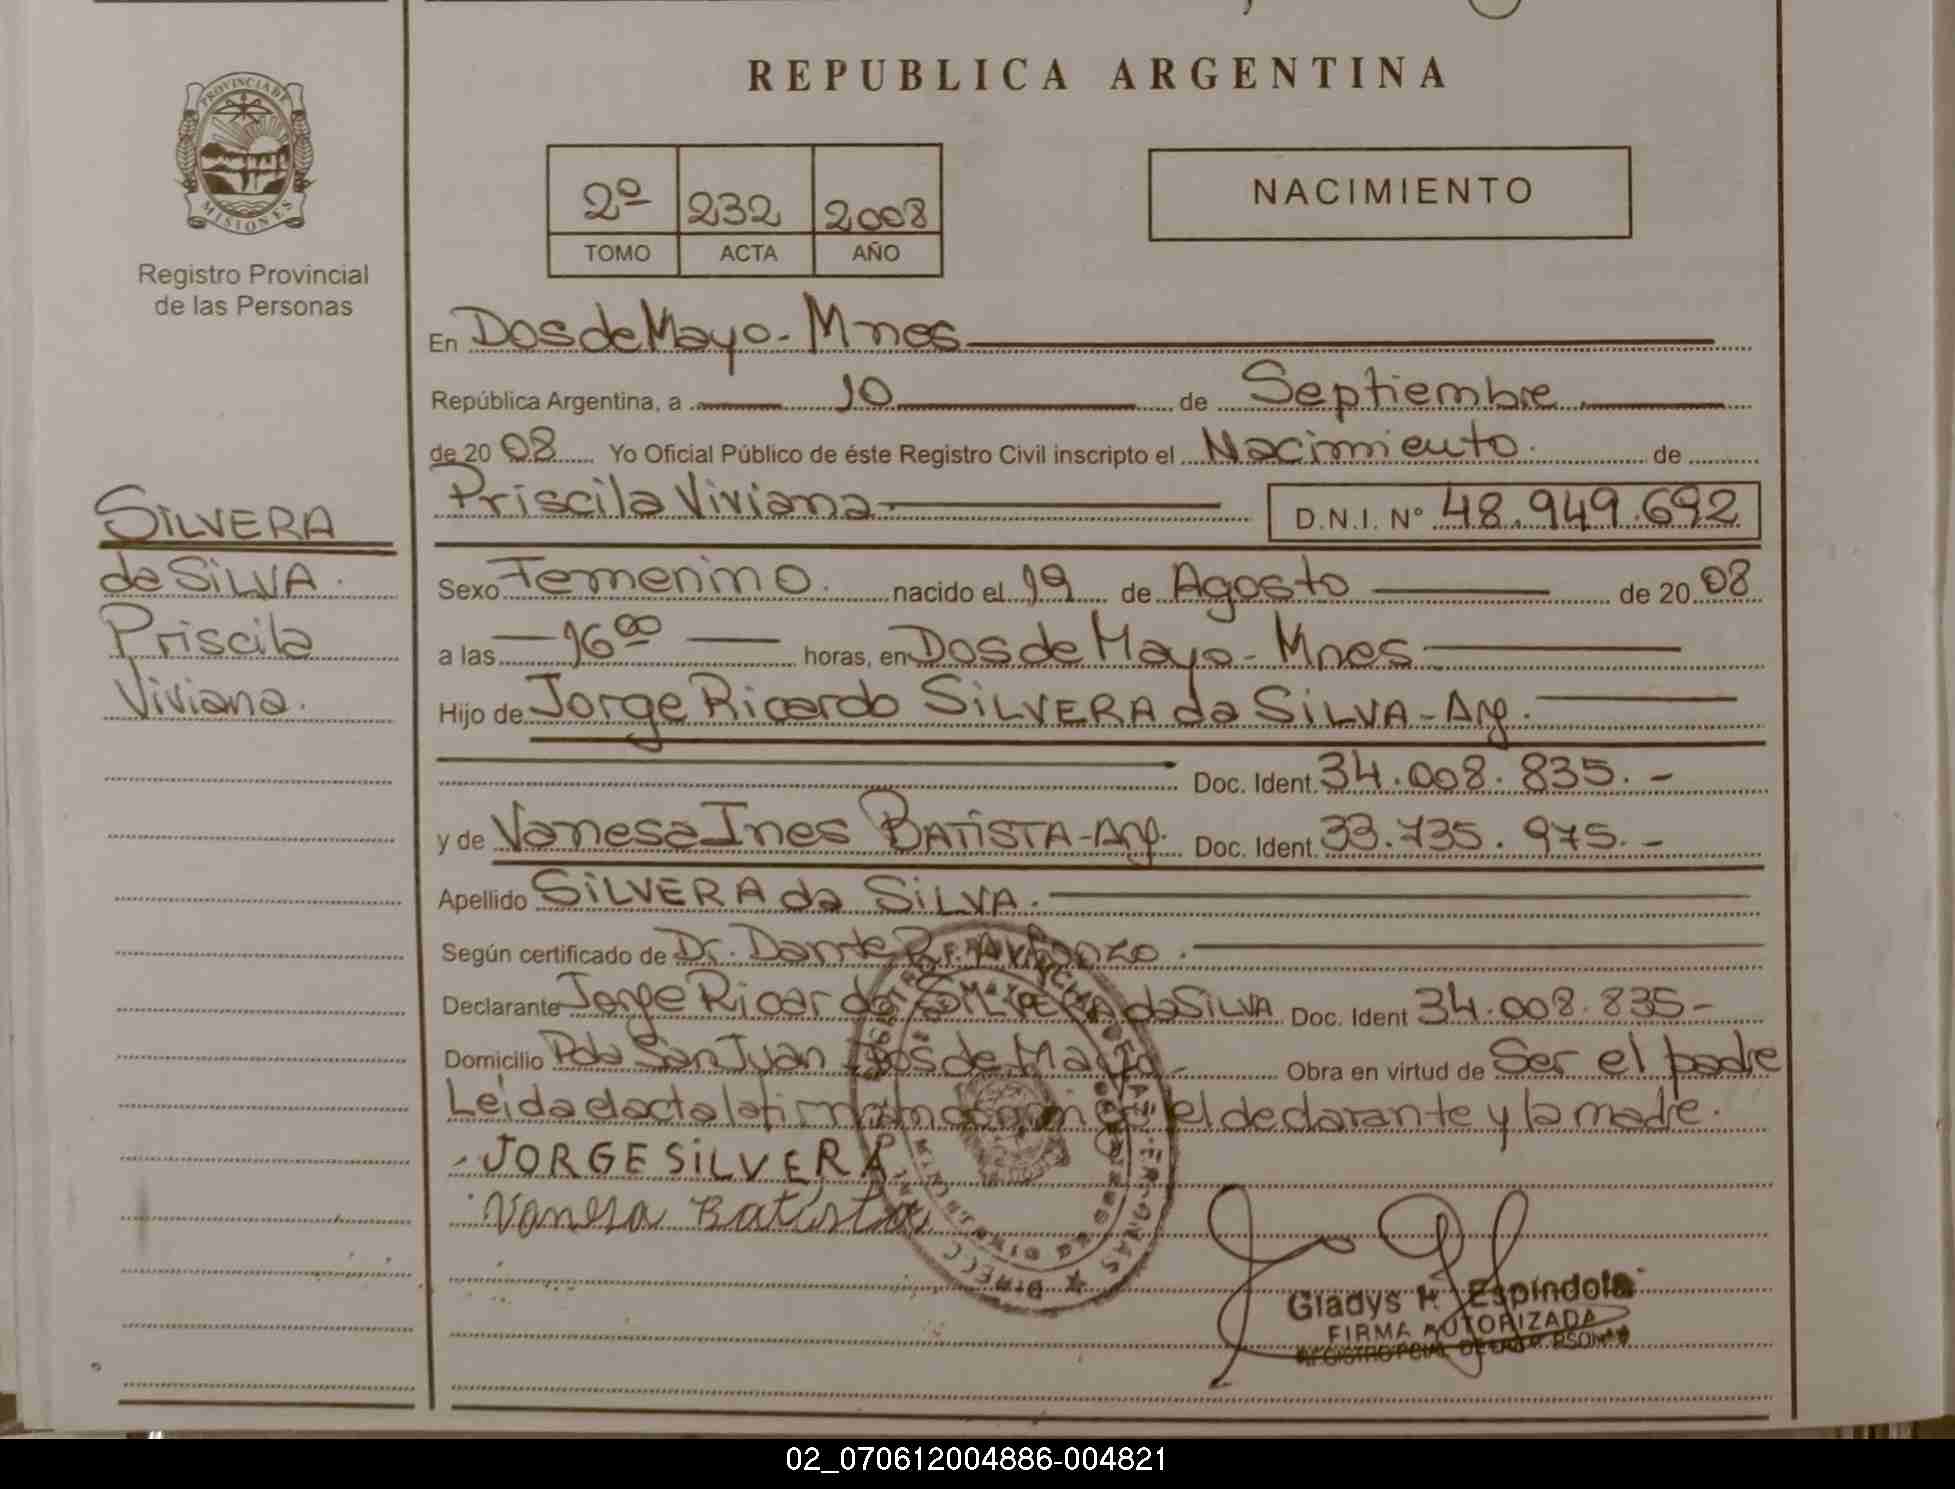 REPUBLICA ARGENTINA
PROVINCIA DE
MISIONES
Registro Provincial
de las Personas
2º 232 2008
TOMO ACTA AÑO
NACIMIENTO
En Dos de Mayo - Mnes
República Argentina, a 10 de Septiembre
de 20 08 Yo Oficial Público de éste Registro Civil inscripto el Nacimiento de
Priscila Viviana D.N.I. Nº 48.949.692
SILVERA
da SILVA.
Priscila
Viviana.
Sexo Femenino. nacido el 19 de Agosto de 20 08
a las 16⁰⁰ horas, en Dos de Mayo - Mnes
Hijo de Jorge Ricardo SILVERA da SILVA - Arg.
Doc. Ident. 34.008.835.-
y de Vanesa Ines BATISTA - Arg. Doc. Ident. 33.735.975.-
Apellido SILVERA da SILVA.
Según certificado de Dr. Dante R.
Declarante Jorge Ricardo SILVERA da SILVA Doc. Ident 34.008.835-
Domicilio Pda San Juan Dos de Mayo - Obra en virtud de Ser el padre
Leida el acta la firman conmigo el declarante y la madre.
JORGE SILVERA
Vanesa Batista
Gladys H. Espindola
FIRMA AUTORIZADA
REGISTRO PCIAL DE LAS PERSONAS
02_070612004886-004821